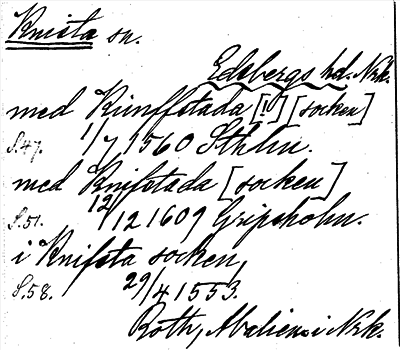 Knista sn.
Edsbergs hd. Nrk.
med Künffstada [!] [socken]
S.47. 1/7 1560 Sthlm.
med Knifstada [socken]
S.51. 12/12 1609 Gripsholm.
i Knifsta socken,
S.58. 29/4 1553.
Roth, i Nrk.